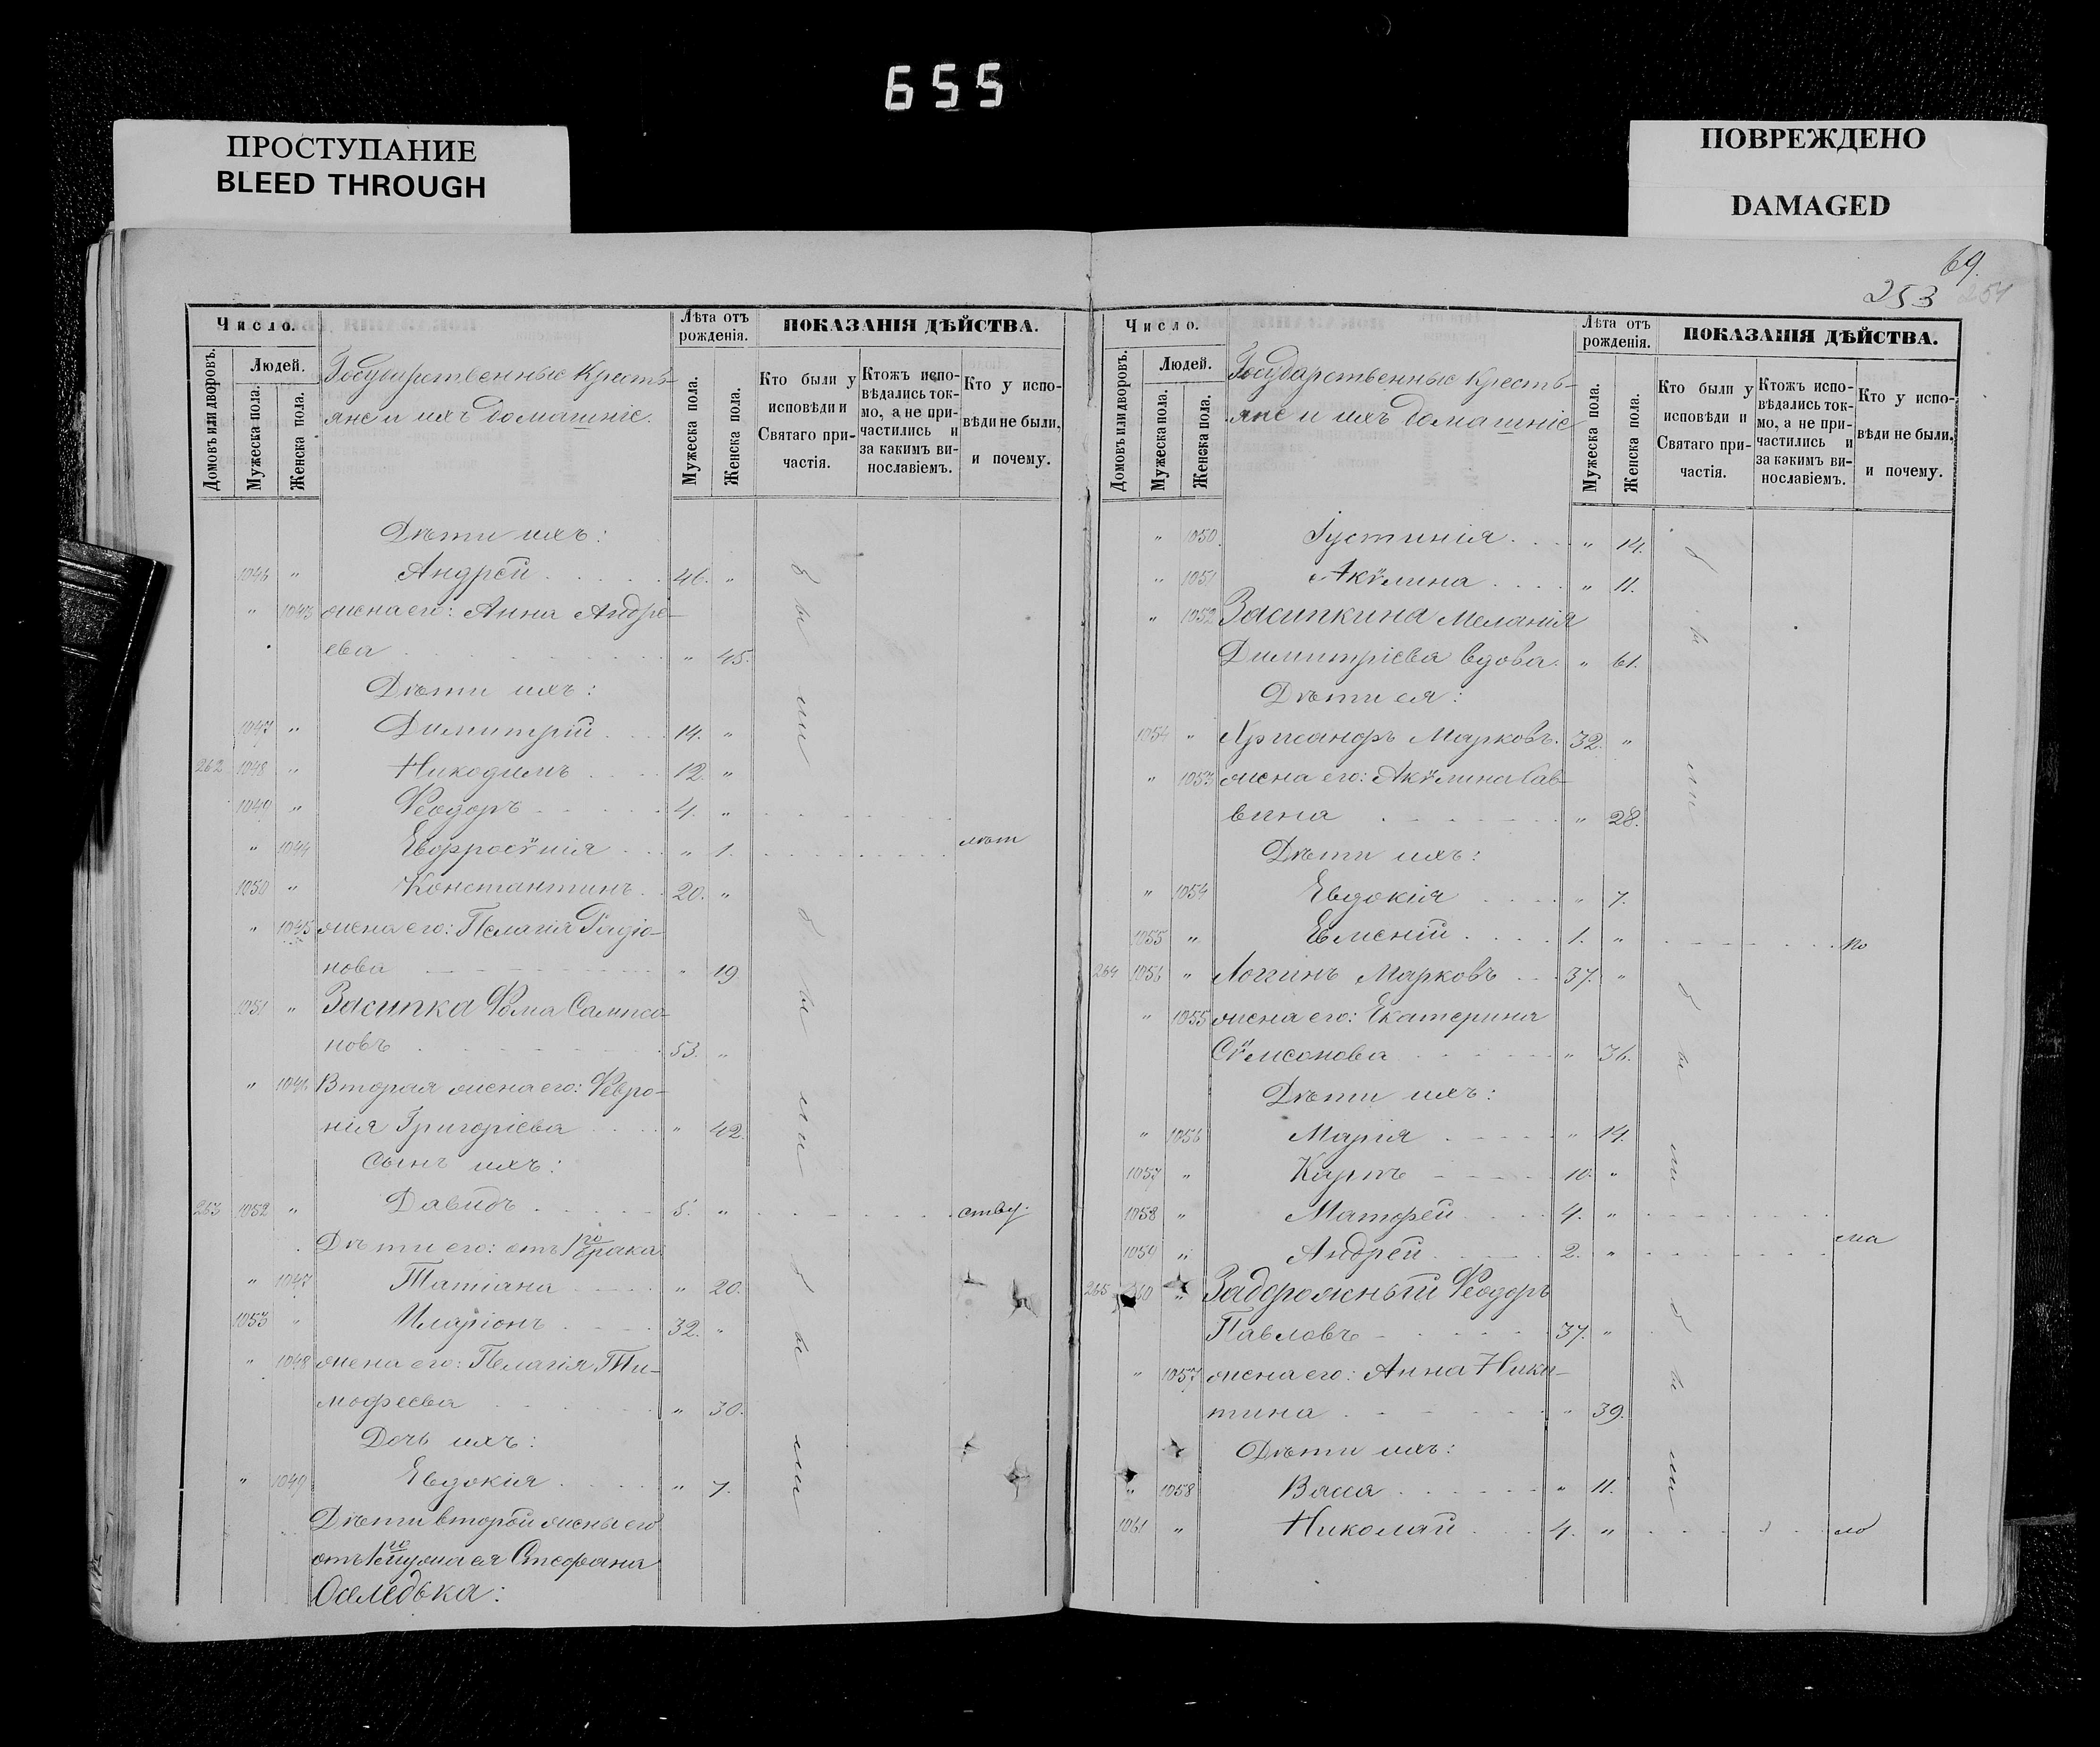 655
ПРОСТУПАНИЕ
BLEED THROUGH
ПОВРЕЖДЕНО
DAMAGED
Число.
Домовъ или дворовъ.
Людей.
Мужеска пола.
Женска пола.
Государственные Кресть-
яне и ихъ домашніе.
Лѣта отъ
рожденія.
Мужеска пола.
Женска пола.
ПОКАЗАНІЯ ДѢЙСТВА.
Кто были у
исповѣди и
Святаго при-
частія.
Ктожъ испо-
вѣдались ток-
мо, а не при-
частились и
за какимъ ви-
нославіемъ.
Кто у испо-
вѣди не были,
и почему.
Дѣти ихъ:
1046 " Андрей 46. "
" 1043 жена его: Анна Андре-
ева " 45.
Дѣти ихъ:
1047 " Димитрій 14. "
262 1048 " Никодимъ 12. "
1049 " Ѳеодоръ 4. "
" 1044 Евфросѵнія " 1. лѣт
1050 " Константинъ 20. "
" 1045 жена его: Пелагія Родіо-
нова " 19
1051 " Засипка Ѳома Сампсо-
новъ 53. "
" 1046 Вторая жена его: Февро-
нія Григоріева " 42.
Сынъ ихъ:
263 1052 " Давидъ 5. " ству.
Дѣти его: отъ 1го брака
" 1047 Татіана " 20.
1053 " Иларіонъ 32. "
" 1048 жена его: Пелагія Ти-
мофеева " 30.
Дочь ихъ:
" 1049 Евдокія " 7.
Дѣти второй жены его
отъ 1го мужа ея Стефана
Оселедька:
были
были
были
69.
253 251
Число.
Домовъ или дворовъ.
Людей.
Мужеска пола.
Женска пола.
Государственные Кресть-
яне и ихъ домашніе
Лѣта отъ
рожденія.
Мужеска пола.
Женска пола.
ПОКАЗАНІЯ ДѢЙСТВА.
Кто были у
исповѣди и
Святаго при-
частія.
Ктожъ испо-
вѣдались ток-
мо, а не при-
частились и
за какимъ ви-
нославіемъ.
Кто у испо-
вѣди не были,
и почему.
" 1050. Іустинія " 14.
" 1051 Акѵлина " 11.
" 1052 Засипкина Меланія
Димитріева вдова " 61.
Дѣти ея:
1054 " Хрисанфъ Марковъ. 32. "
" 1053 жена его: Акѵлина Сав-
вина " 28.
Дѣти ихъ:
" 1054 Евдокія " 7.
1055 " Евменій 1. " по
264 1056 " Логгинъ Марковъ 37. "
" 1055 жена его: Екатерина
Сѵмсонова " 36.
Дѣти ихъ:
" 1056 Марія " 14.
1057 " Карпъ 10. "
1058 " Матфей 4. "
1059 " Андрей 2. " ма
265 "
Задорожный Ѳеодоръ
Павловъ 37. "
" 1057 жена его: Анна Ники-
тина " 39.
Дѣти ихъ:
" 1058 Васса " 11.
1061 " Николай 4. " ло
были
были
были